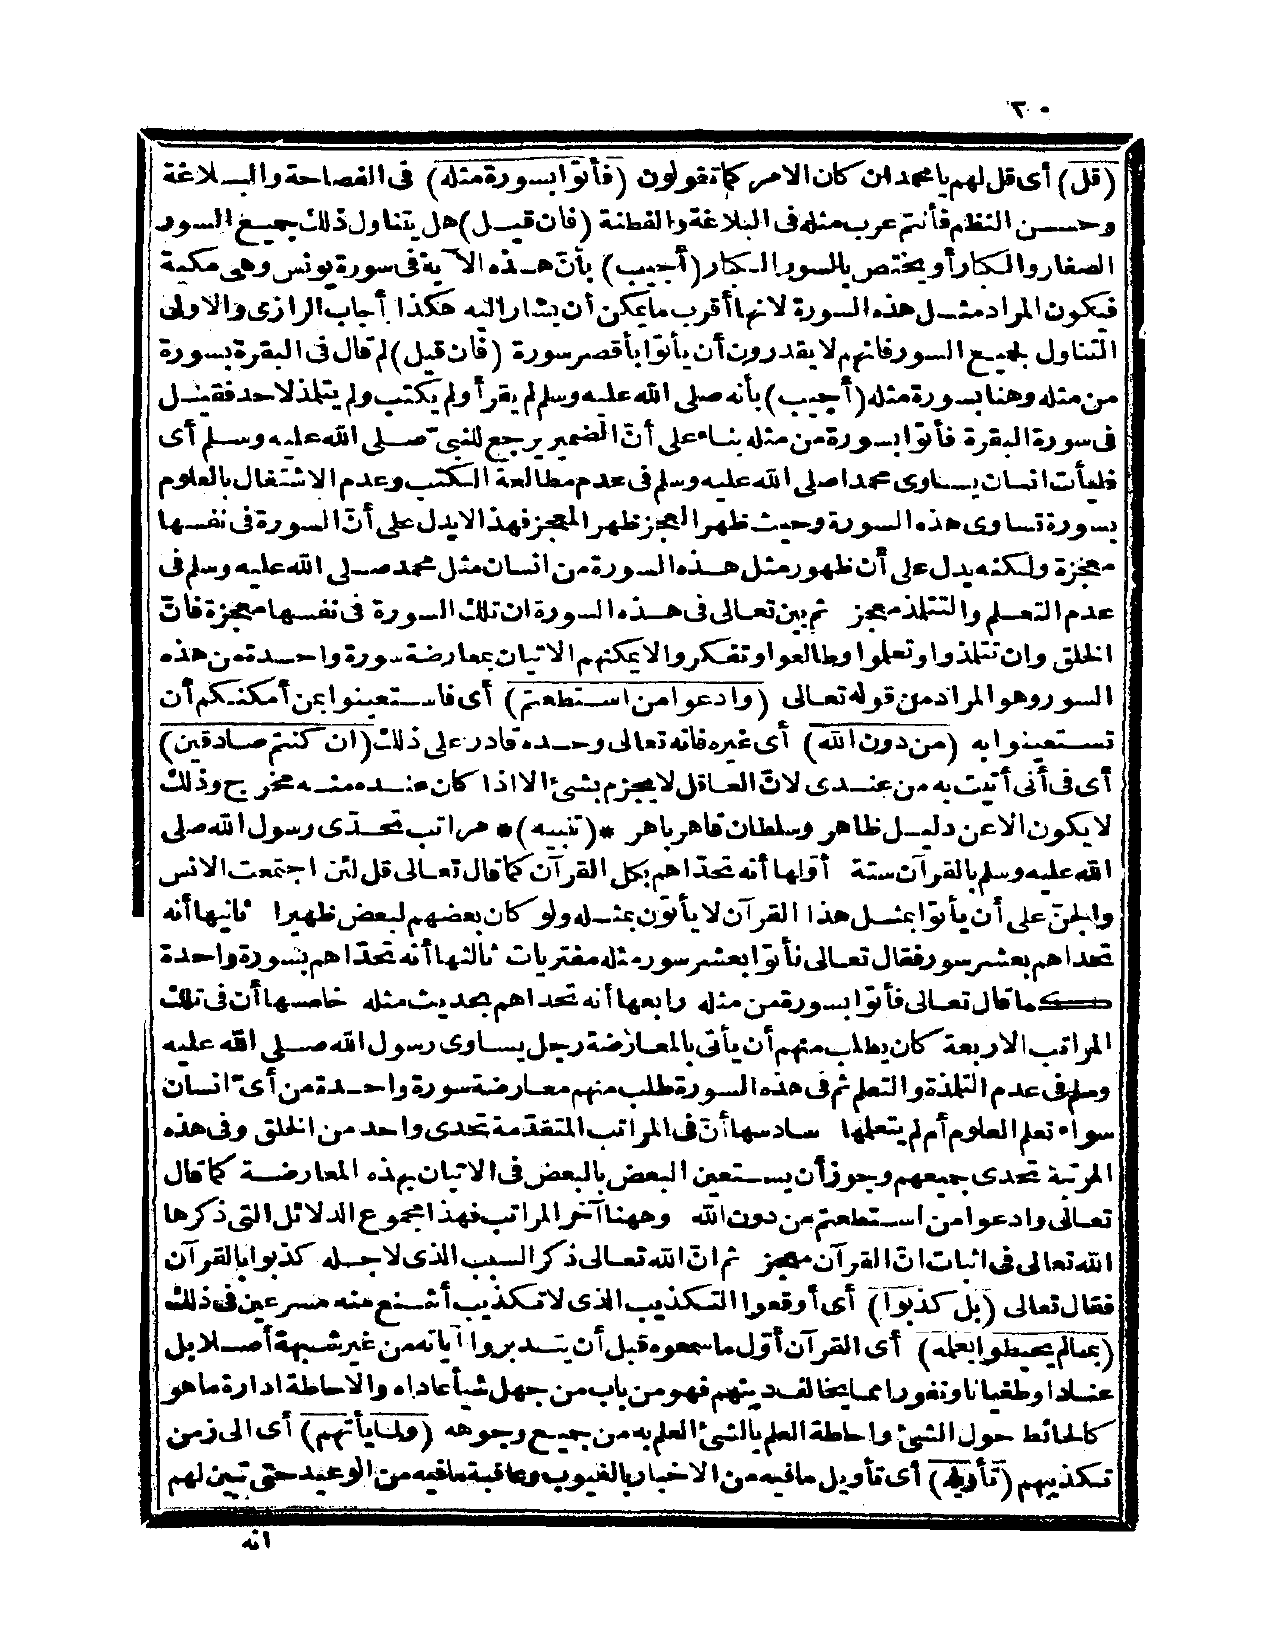 ٢٠
(قل) أى قل لهم يا محمد ان كان الامر كما تقولون (فأتوا بسورة مثله) فى الفصاحة والبلاغة
وحسن النظم فأنتم عرب مثله فى البلاغة والفطنة (فان قيل) هل يتناول ذلك جميع السور
الصغار والكبار أو يختص بالسور الكبار (أجيب) بأن هذه الآية فى سورة يونس وهى مكية
فيكون المراد مثل هذه السورة لانها أقرب ما يمكن أن يشار اليه هكذا أجاب الرازى والاولى
التناول لجميع السور فانهم لا يقدرون أن يأتوا بأقصر سورة (فان قيل) لم قال فى البقرة بسورة
من مثله وهنا بسورة مثله (أجيب) بأنه صلى الله عليه وسلم لم يقرأ ولم يكتب ولم يتلمذ لاحد فقيل
فى سورة البقرة فأتوا بسورة من مثله بناء على أنّ الضمير يرجع للنبىّ صلى الله عليه وسلم أى
فليأت انسان يساوى محمدا صلى الله عليه وسلم فى عدم مطالعة الكتب وعدم الاشتغال بالعلوم
بسورة تساوى هذه السورة وحيث ظهر العجز ظهر المعجز فهذا لا يدل على أنّ السورة فى نفسها
معجزة ولكنه يدل على أن ظهور مثل هذه السورة من انسان مثل محمد صلى الله عليه وسلم فى
عدم التعلم والتتلمذ معجز ثم بين تعالى فى هذه السورة ان تلك السورة فى نفسها معجزة فانّ
الخلق وان تتلمذوا وتعلموا وطالعوا وتفكروا لا يمكنهم الاتيان بمعارضة سورة واحدة من هذه
السور وهو المراد من قوله تعالى (وادعوا من استطعتم) أى فاستعينوا بمن أمكنكم أن
تستعينوا به (من دون الله) أى غيره فانه تعالى وحده قادر على ذلك (ان كنتم صادقين)
أى فى أنى أتيت به من عندى لانّ العاقل لا يجزم بشئ الا اذا كان عنده منه مخرج وذلك
لا يكون الا عن دليل ظاهر وسلطان قاهر باهر *(تنبيه)* مراتب تحدّى رسول الله صلى
الله عليه وسلم بالقرآن ستة أوّلها أنه تحدّاهم بكل القرآن كما قال تعالى قل لئن اجتمعت الانس
والجنّ على أن يأتوا بمثل هذا القرآن لا يأتون بمثله ولو كان بعضهم لبعض ظهيرا ثانيها أنه
تحداهم بعشر سور فقال تعالى فأتوا بعشر سور مثله مفتريات ثالثها أنه تحدّاهم بسورة واحدة
كما قال تعالى فأتوا بسورة من مثله رابعها أنه تحداهم بحديث مثله خامسها أن فى تلك
المراتب الاربعة كان يطلب منهم أن يأتى بالمعارضة رجل يساوى رسول الله صلى الله عليه
وسلم فى عدم التلمذة والتعلم ثم فى هذه السورة طلب منهم معارضة سورة واحدة من أىّ انسان
سواء تعلم العلوم أم لم يتعلمها سادسها أنّ فى المراتب المتقدمة تحدى واحد من الخلق وفى هذه
المرتبة تحدى جميعهم وجوز أن يستعين البعض بالبعض فى الاتيان بهذه المعارضة كما قال
تعالى وادعوا من استطعتم من دون الله وههنا آخر المراتب فهذا مجموع الدلائل التى ذكرها
الله تعالى فى اثبات انّ القرآن معجز ثم انّ الله تعالى ذكر السبب الذى لاجله كذبوا بالقرآن
فقال تعالى (بل كذبوا) أى أوقعوا التكذيب الذى لا تكذيب أشنع منه مسرعين فى ذلك
(بما لم يحيطوا بعلمه) أى القرآن أوّل ما سمعوه قبل أن يتدبروا آياته من غير شبهة أصلا بل
عنادا وطغيانا ونفورا مما يخالف دينهم فهو من باب من جهل شيأ عاداه والاحاطة ادارة ما هو
كالحائط حول الشئ واحاطة العلم بالشئ العلم به من جميع وجوهه (ولما يأتهم) أى الى زمن
تكذيبهم (تأويله) أى تأويل ما فيه من الاخبار بالغيوب وعاقبة ما فيه من الوعيد حتى تبين لهم
انه